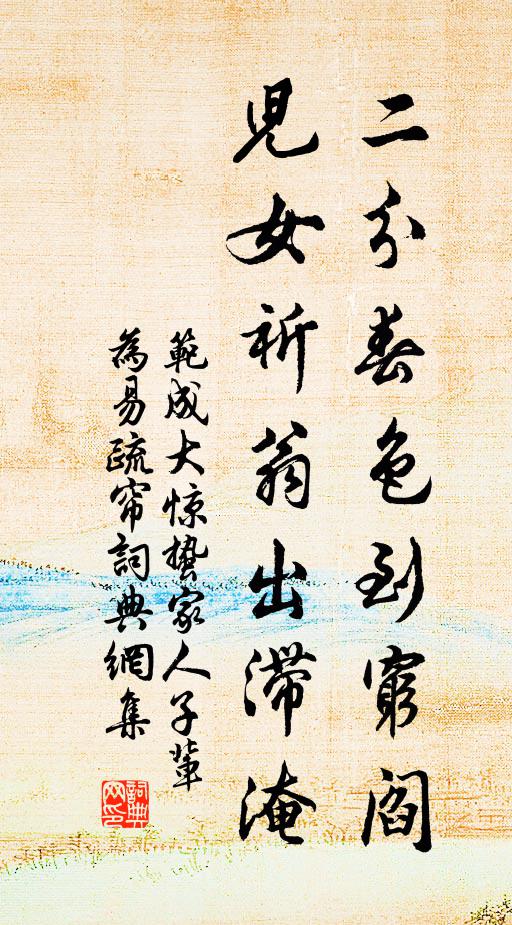 二分春色到窮閻
兒女祈翁出滯淹
範成大惊蟄家人子輩
為易疏帘詞典網集
詞典网印